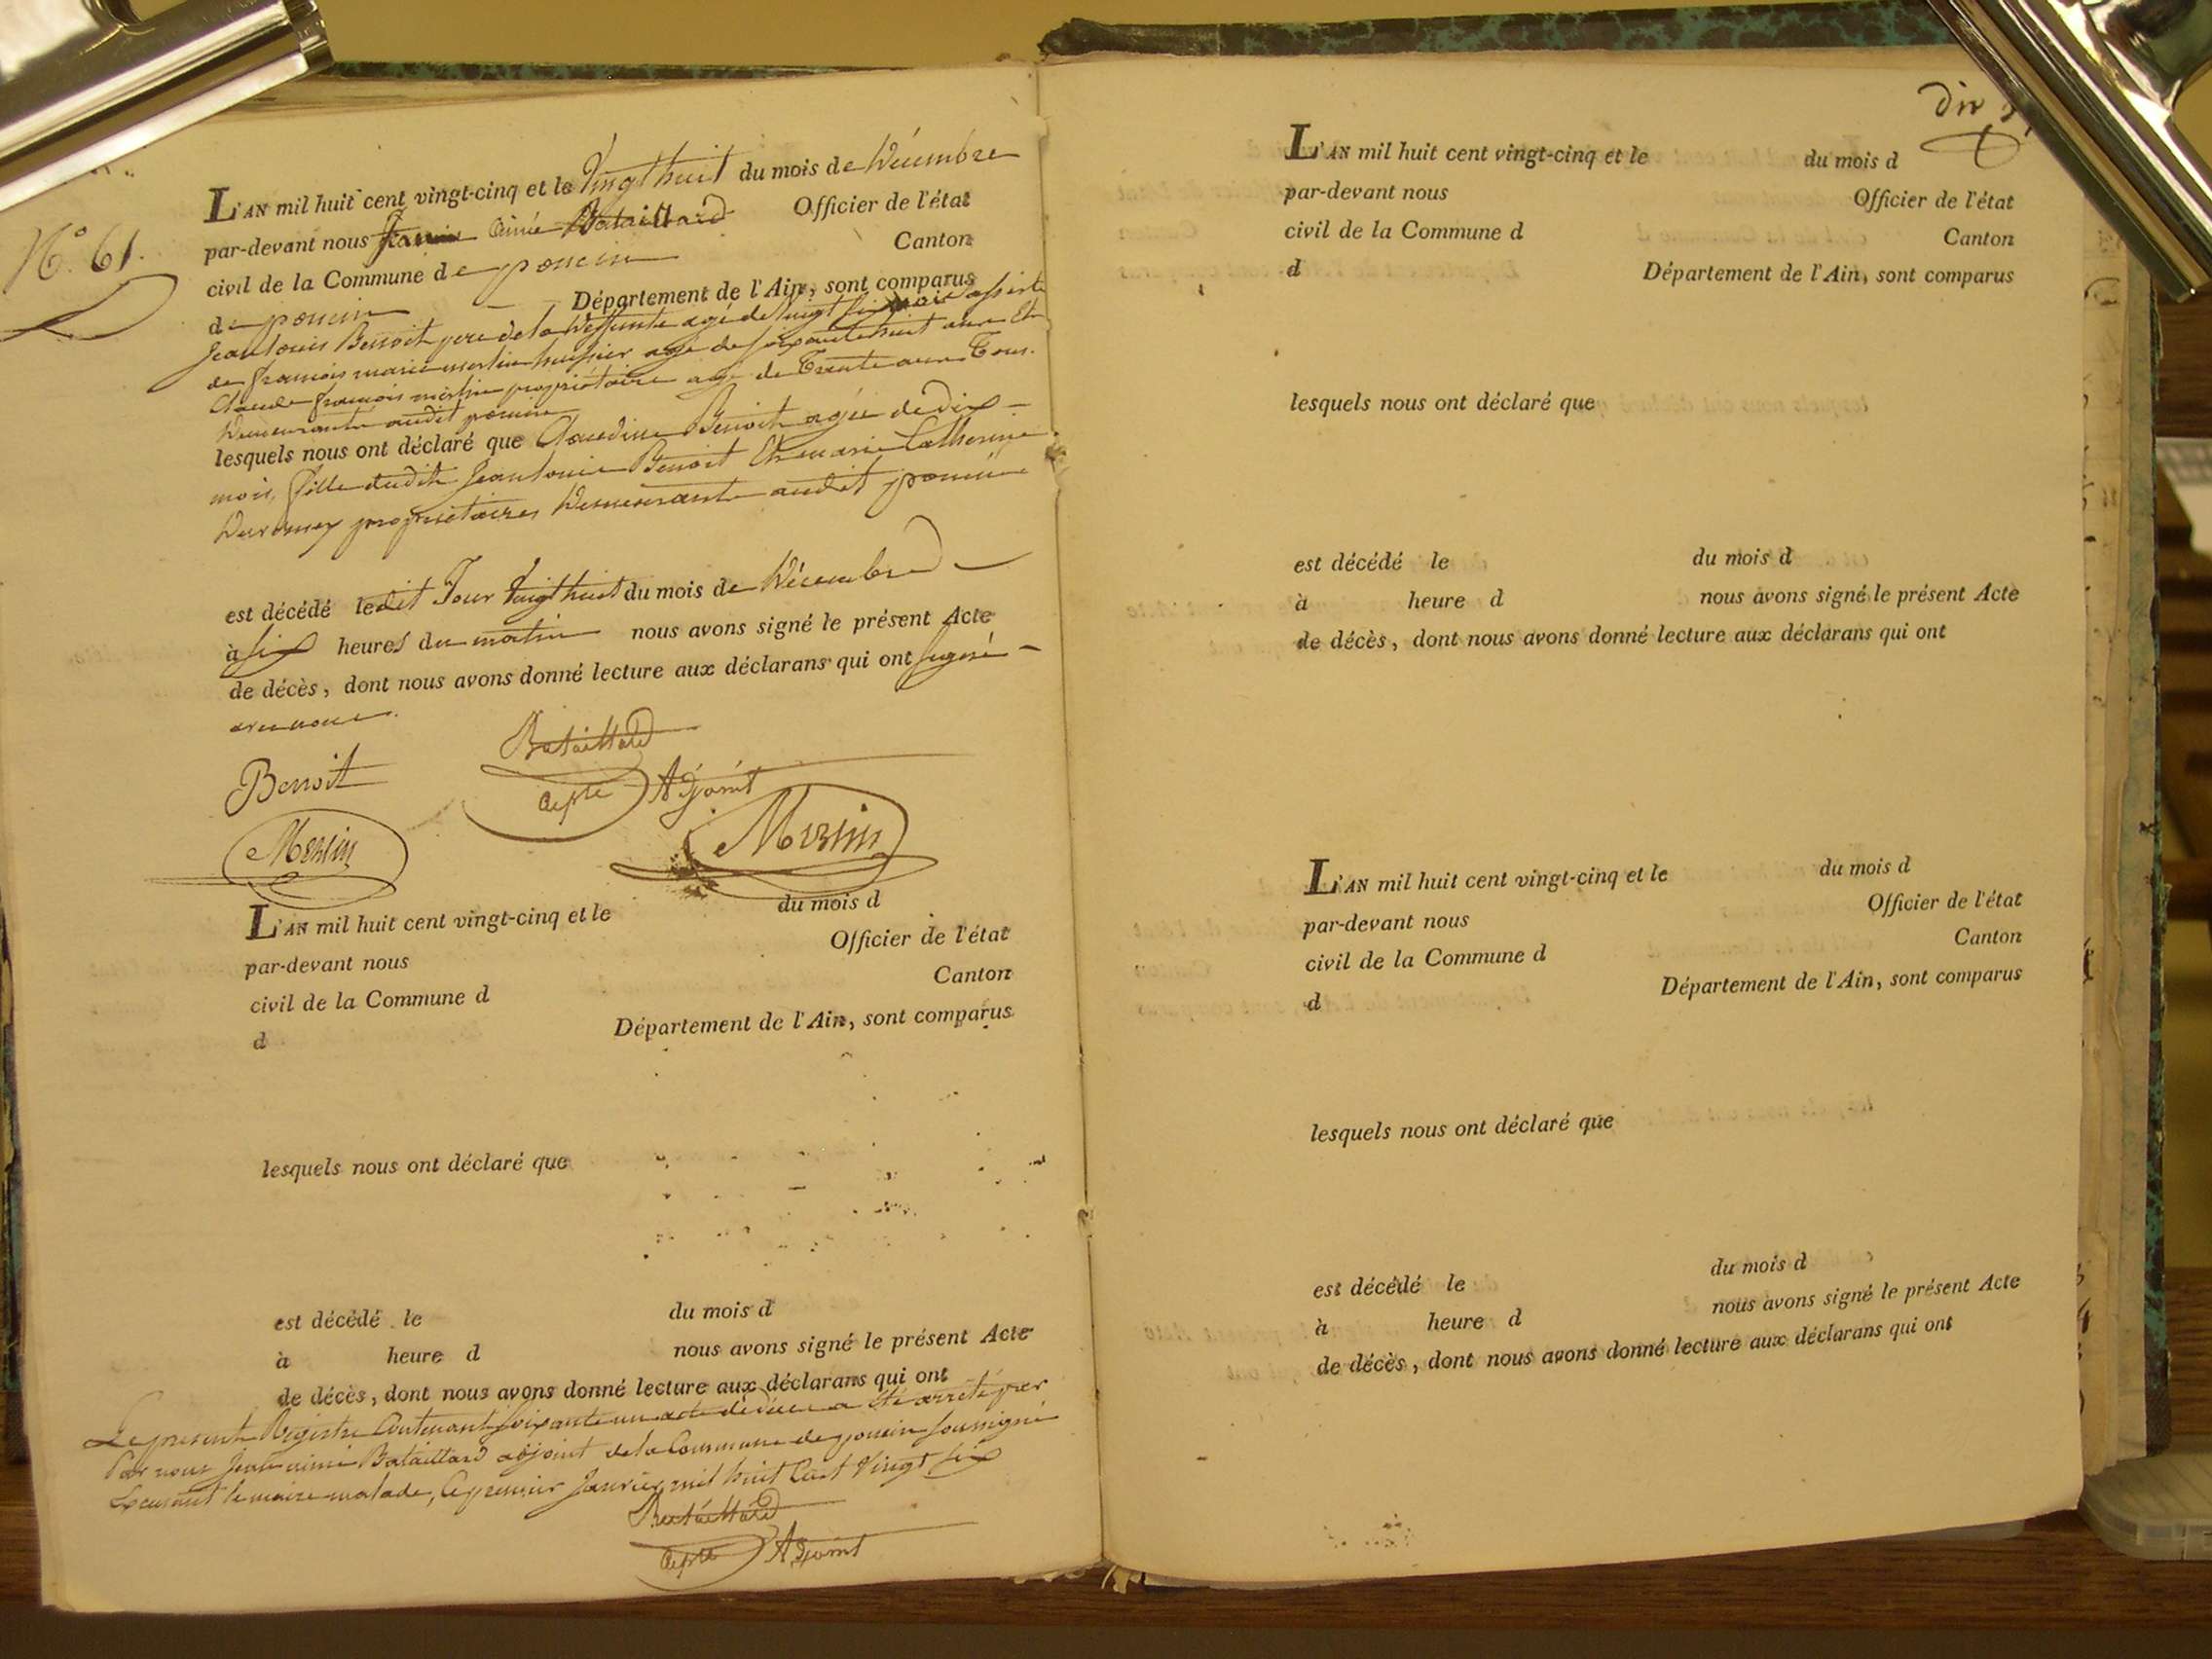 N.° 61.
L'AN mil huit cent vingt-cinq et le Vingt huit du mois de Décembre
par-devant nous Jean Aimé Bataillard Officier de l'état
civil de la Commune de poncin Canton
de poncin Département de l'Ain, sont comparus
Jean Louis Benoit pere de la deffunte agé de vingt six assisté
de françois marie merlin huissier agé de soixante huit ans Et
Claude françois merlin propriétaire agé de Trente ans Tous
Demeurants audit poncin
lesquels nous ont déclaré que Claudine Benoit agée de dix
mois, fille dudit Jean Louis Benoit Et marie Catherine
propriétaires Demeurants audit poncin
est décédé ledit Jour Vingt huit du mois de Décembre
à six heures du matin nous avons signé le présent Acte
de décès, dont nous avons donné lecture aux déclarans qui ont signé
avec nous.
Benoit
Bataillard
Adjoint
Merlin
Merlin
L'AN mil huit cent vingt-cinq et le du mois d
par-devant nous Officier de l'état
civil de la Commune d Canton
d Département de l'Ain, sont comparus
lesquels nous ont déclaré que
est décédé le du mois d
à heure d nous avons signé le présent Acte
de décès, dont nous avons donné lecture aux déclarans qui ont
Le present Registre Contenant soixante un acte de décès a été arrêté par
Par nous Jean aimé Bataillard adjoint de la Commune de poncin soussigné
le maire malade, Ce premier Janvier mil huit Cent Vingt six
Bataillard
Adjoint
L'AN mil huit cent vingt-cinq et le du mois d
par-devant nous Officier de l'état
civil de la Commune d Canton
d Département de l'Ain, sont comparus
lesquels nous ont déclaré que
est décédé le du mois d
à heure d nous avons signé le présent Acte
de décès, dont nous avons donné lecture aux déclarans qui ont
L'AN mil huit cent vingt-cinq et le du mois d
par-devant nous Officier de l'état
civil de la Commune d Canton
d Département de l'Ain, sont comparus
lesquels nous ont déclaré que
est décédé le du mois d
à heure d nous avons signé le présent Acte
de décès, dont nous avons donné lecture aux déclarans qui ont